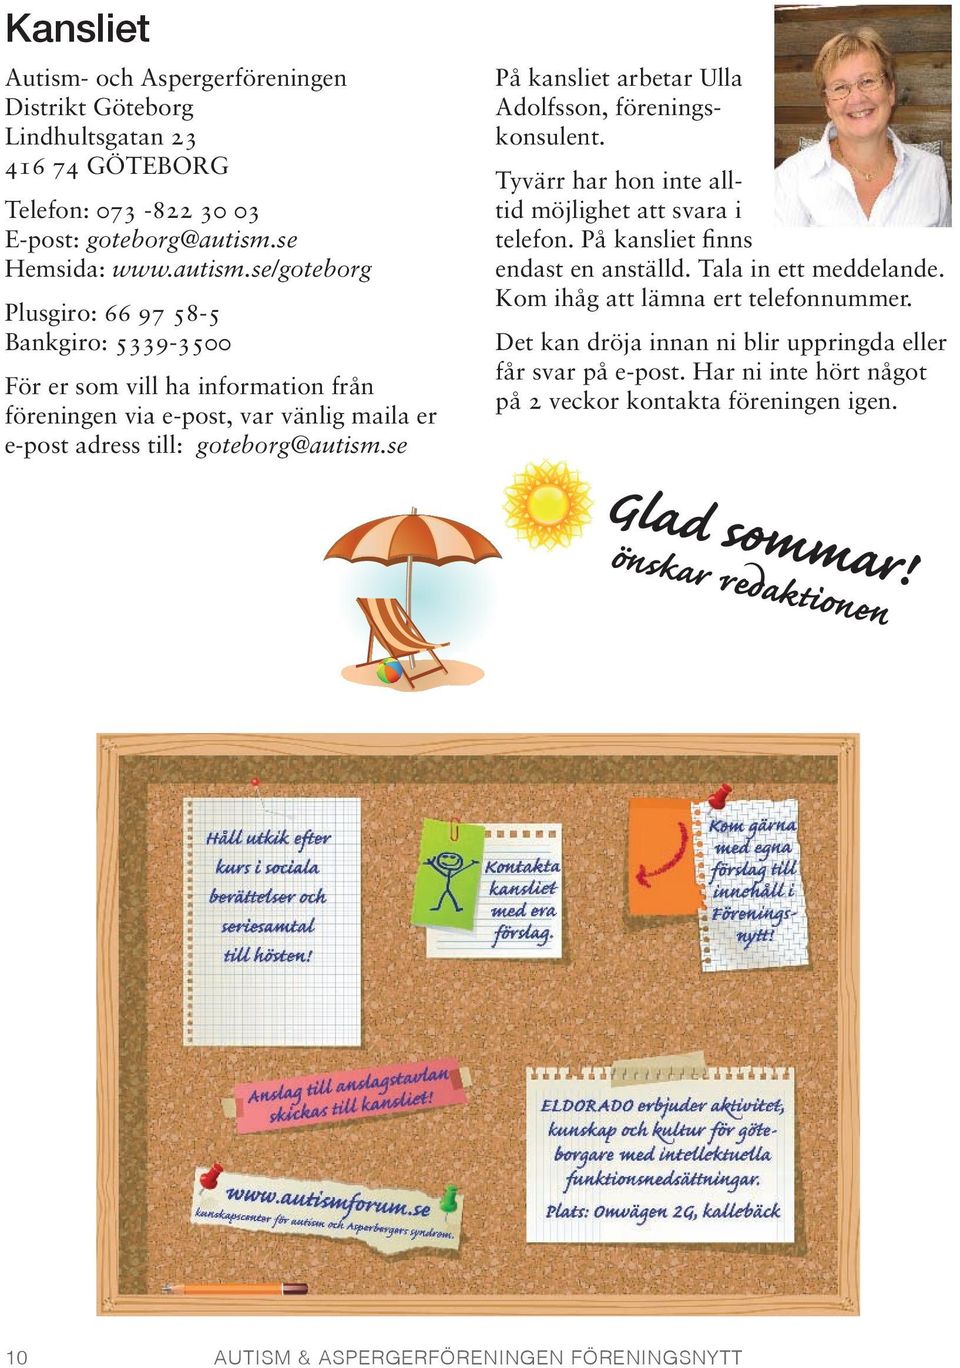 Kansliet
Autism- och Aspergerföreningen
Distrikt Göteborg
Lindhultsgatan 23
416 74 GÖTEBORG
Telefon: 073 -822 30 03
E-post: goteborg@autism.se
Hemsida: www.autism.se/goteborg
Plusgiro: 66 97 58-5
Bankgiro: 5339-3500
För er som vill ha information från
föreningen via e-post, var vänlig maila er
e-post adress till: goteborg@autism.se
På kansliet arbetar Ulla
Adolfsson, förenings-
konsulent.
Tyvärr har hon inte all-
tid möjlighet att svara i
telefon. På kansliet finns
endast en anställd. Tala in ett meddelande.
Kom ihåg att lämna ert telefonnummer.
Det kan dröja innan ni blir uppringda eller
får svar på e-post. Har ni inte hört något
på 2 veckor kontakta föreningen igen.
Glad sommar!
önskar redaktionen
Håll utkik efter
kurs i sociala
berättelser och
seriesamtal
till hösten!
Kontakta
kansliet
med era
förslag.
Kom gärna
med egna
förslag till
innehåll i
Förenings-
nytt!
Anslag till anslagstavlan
skickas till kansliet!
www.autismforum.se
kunskapscenter för autism och Asperbergers syndrom.
ELDORADO erbjuder aktivitet,
kunskap och kultur för göte-
borgare med intellektuella
funktionsnedsättningar.
Plats: Omvägen 2G, kallebäck
10 AUTISM & ASPERGERFÖRENINGEN FÖRENINGSNYTT